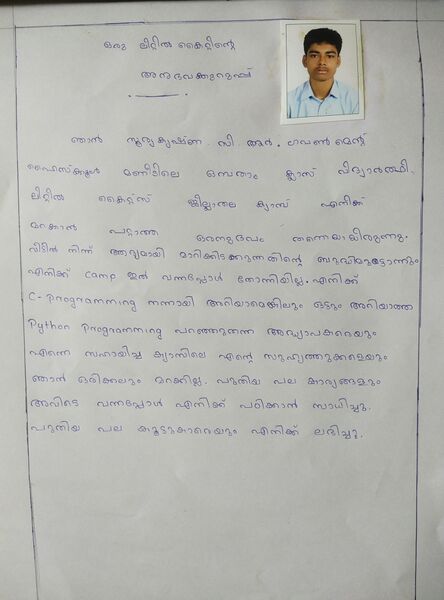 ഒരു ലിറ്റിൽ കൈറ്റിന്റെ
അനുഭവക്കുറുപ്പ്
ഞാൻ സൂര്യകൃഷ്ണ. സി. ആർ. ഗവൺമെന്റ്
ഹൈസ്ക്കൂൾ മണീടിലെ ഒമ്പതാം ക്ലാസ് വിദ്യാർത്ഥി.
ലിറ്റിൽ കൈറ്റ്സ് ജില്ലാതല ക്യാമ്പ് എനിക്ക്
മറക്കാൻ പറ്റാത്ത ഒരനുഭവം തന്നെയായിരുന്നു.
വീട്ടിൽ നിന്ന് ആദ്യമായി മാറികിടക്കുന്നതിന്റെ ബുദ്ധിമുട്ടൊന്നും
എനിക്ക് camp ഇൽ വന്നപ്പോൾ തോന്നിയില്ല. എനിക്ക്
C-programming നന്നായി അറിയാമെങ്കിലും ഒട്ടും അറിയാത്ത
Python programming പറഞ്ഞുതന്ന അദ്ധ്യാപകരെയും
എന്നെ സഹായിച്ച ക്യാമ്പിലെ എന്റെ സുഹൃത്തുക്കളെയും
ഞാൻ ഒരിക്കലും മറക്കില്ല. പുതിയ പല കാര്യങ്ങളും
അവിടെ വന്നപ്പോൾ എനിക്ക് പഠിക്കാൻ സാധിച്ചു.
പുതിയ പല കൂട്ടുകാരെയും എനിക്ക് ലഭിച്ചു.